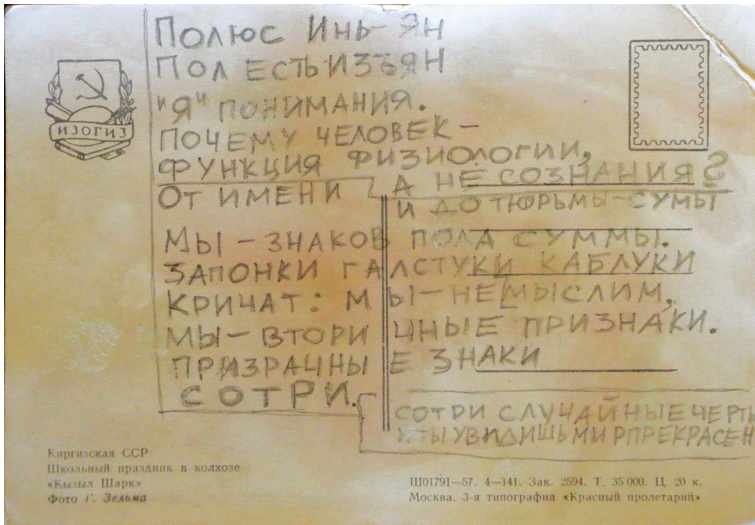 ПОЛЮС ИНЬ-ЯН
ПОЛ ЕСТЬ ИЗЪЯН
"Я" ПОНИМАНИЯ.
ПОЧЕМУ ЧЕЛОВЕК-
ФУНКЦИЯ ФИЗИОЛОГИИ,
А НЕ СОЗНАНИЯ?
ОТ ИМЕНИ
И ДО ТЮРЬМЫ-СУМЫ
МЫ-ЗНАКОВ ПОЛА СУММЫ.
ЗАПОНКИ ГАЛСТУКИ КАБЛУКИ
КРИЧАТ: МЫ-НЕ МЫСЛИМ,
МЫ-ВТОРИЧНЫЕ ПРИЗНАКИ.
ПРИЗРАЧНЫЕ ЗНАКИ
СОТРИ.
СОТРИ СЛУЧАЙНЫЕ ЧЕРТЫ
И ТЫ УВИДИШЬ МИР ПРЕКРАСЕН
ИЗОГИЗ
Киргизская ССР
Школьный праздник в колхозе
«Кызыл Шарк»
Фото Г. Зельма
Ш01791—57. 4—141. Зак. 2594. Т. 35 000. Ц. 20 к.
Москва. 3-я типография «Красный пролетарий»